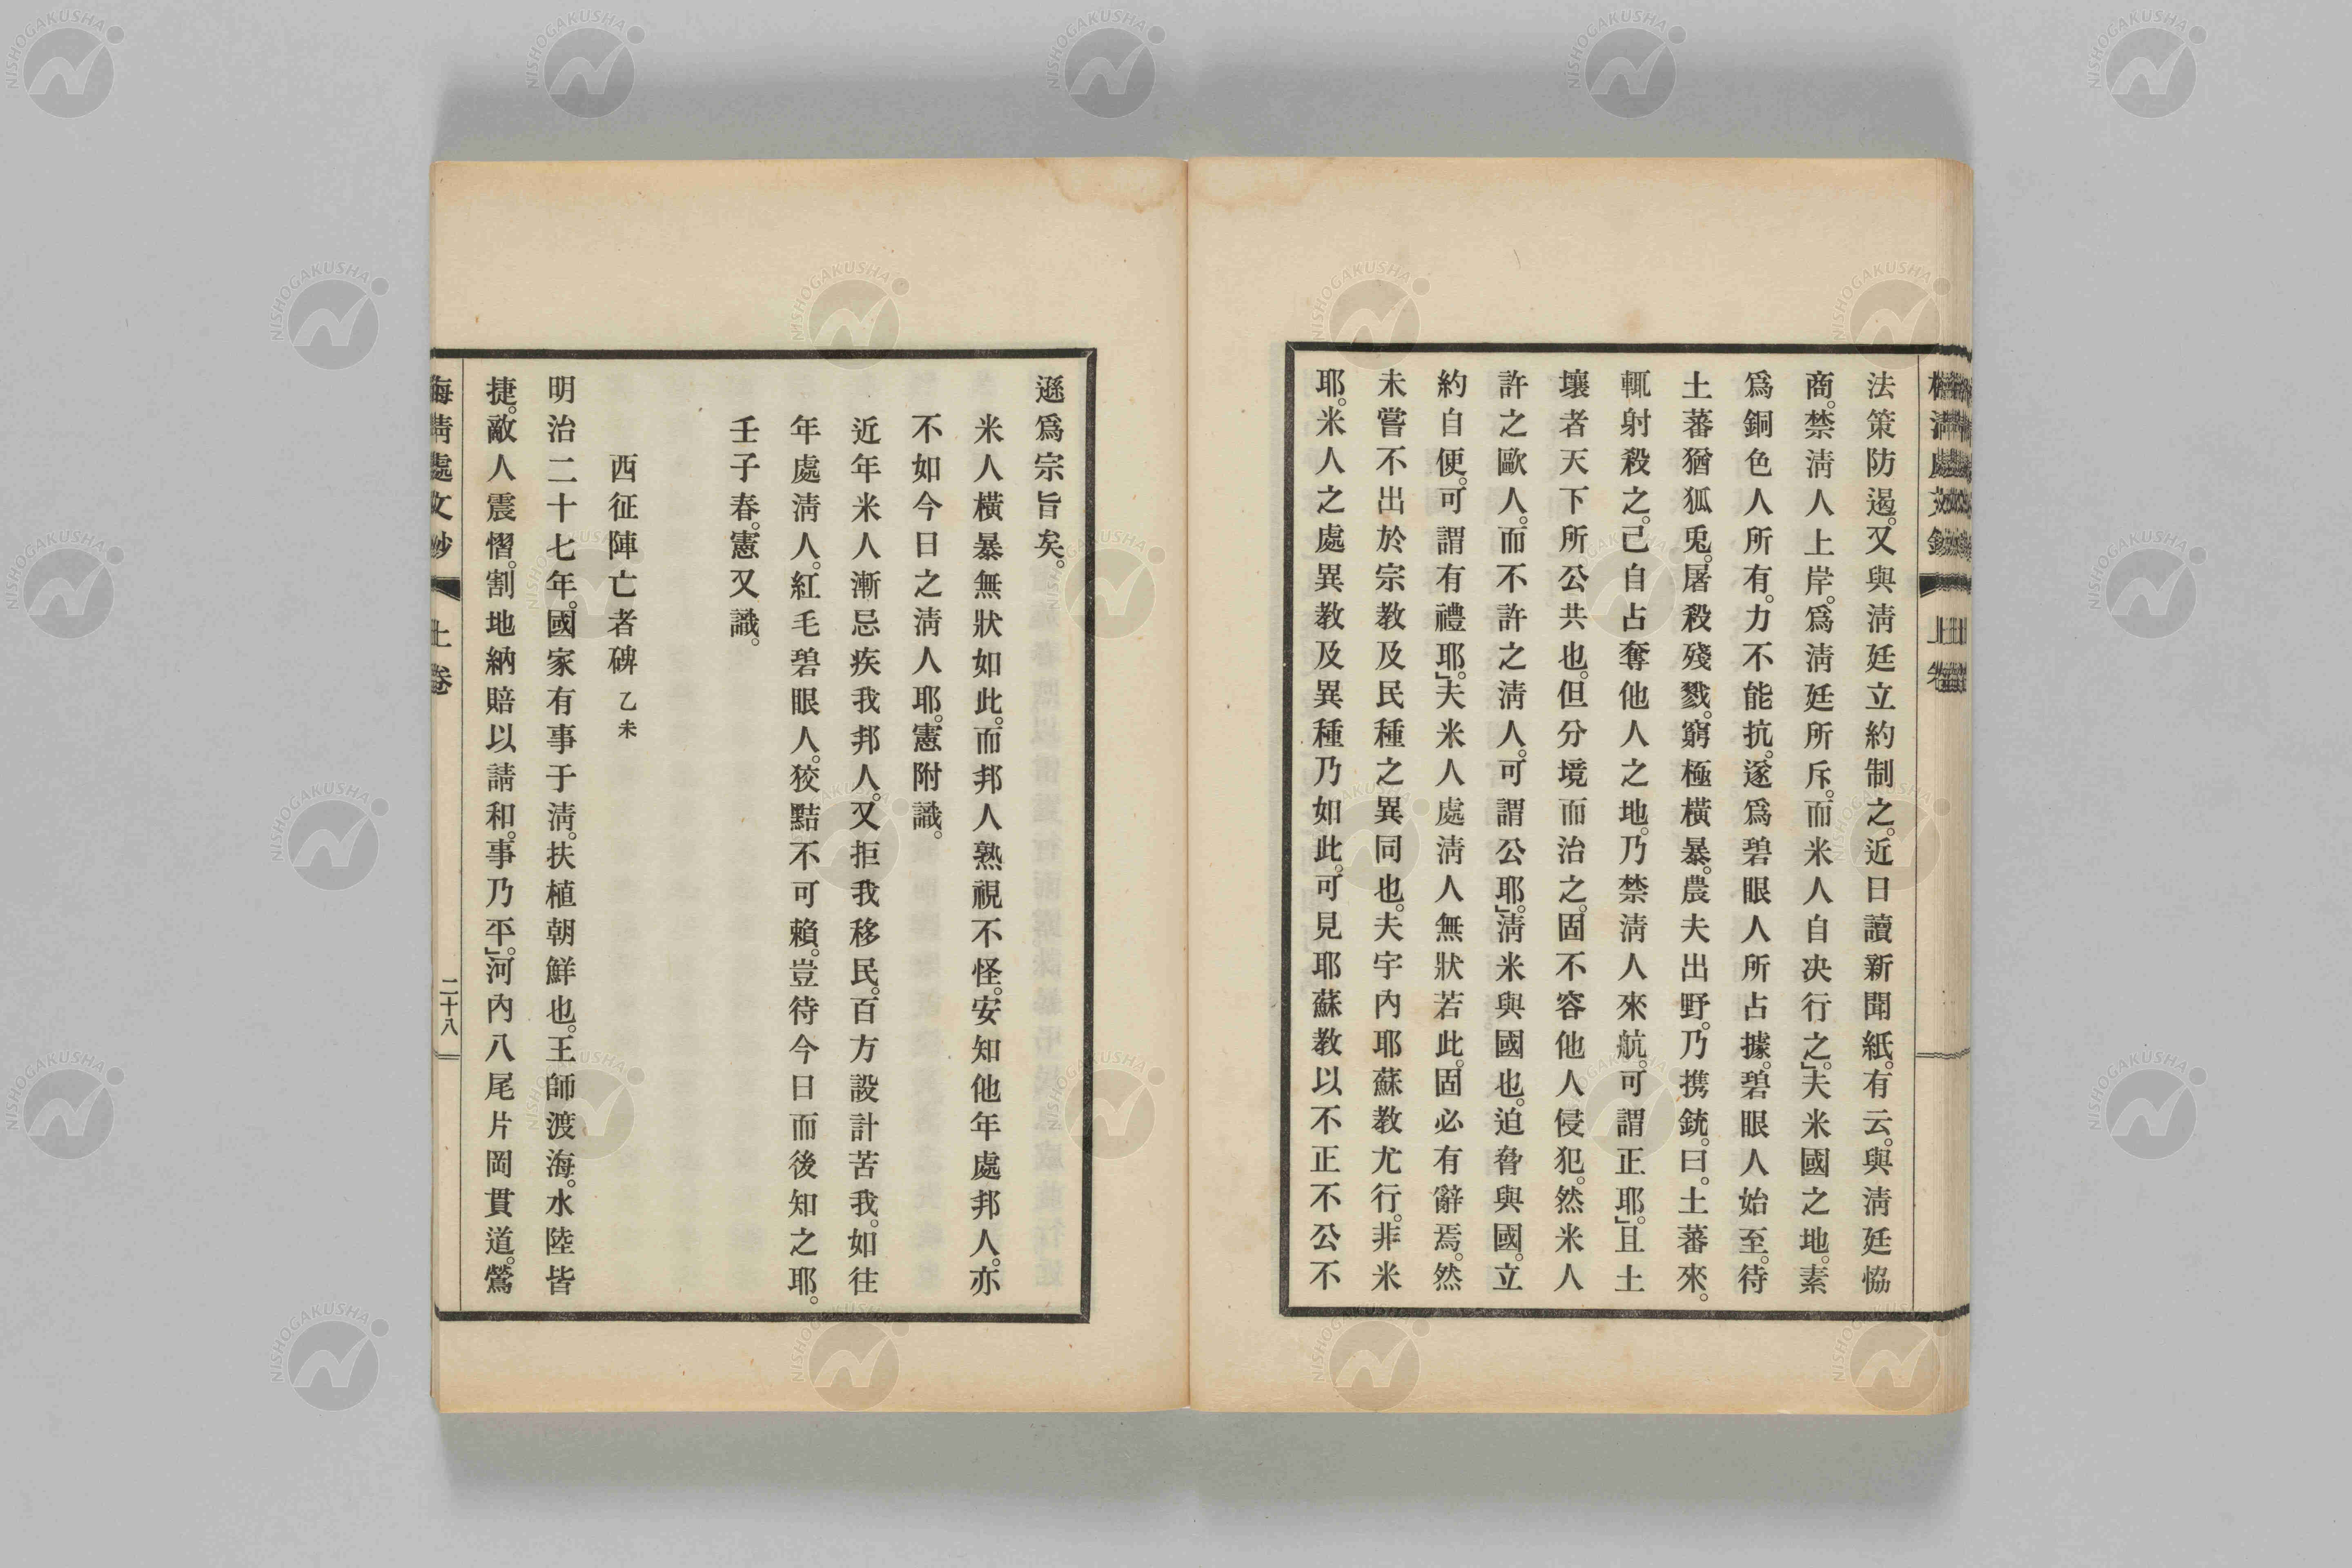 法策防遏。又與淸廷立約制之。近日讀新聞紙。有云。與淸廷恊
商。禁淸人上岸。爲淸廷所斥。而米人自决行之。」夫米國之地。素
爲銅色人所有。力不能抗。遂爲碧眼人所占據。碧眼人始至。待
土蕃猶狐兎。屠殺殘戮。窮極横暴。農夫出野。乃携銃。曰。土蕃來。
輒射殺之。己自占奪他人之地。乃禁淸人來航。可謂正耶。」且土
壤者天下所公共也。但分境而治之。固不容他人侵犯。然米人
許之歐人。而不許之淸人。可謂公耶。」淸米與國也。迫脅與國。立
約自便。可謂有禮耶。」夫米人處淸人無狀若此。固必有辭焉。然
未嘗不出於宗教及民種之異同也。夫宇內耶蘇教尤行。非米
耶。米人之處異教及異種乃如此。可見耶蘇教以不正不公不
遜爲宗旨矣。
米人橫暴無狀如此。而邦人熟視不怪。安知他年處邦人。亦
不如今日之淸人耶。憲附識。
近年米人漸忌疾我邦人。又拒我移民。百方設計苦我。如往
年處淸人。紅毛碧眼人。狡黠不可賴。豈待今日而後知之耶。
壬子春。憲又識。
西征陣亡者碑 乙未
明治二十七年。國家有事于淸。扶植朝鮮也。王師渡海。水陸皆
捷。敵人震慴。割地納賠以請和。事乃平。」河內八尾片岡貫道。鶯
海淸處文鈔 上卷 二十八
NISHOGAKUSHA